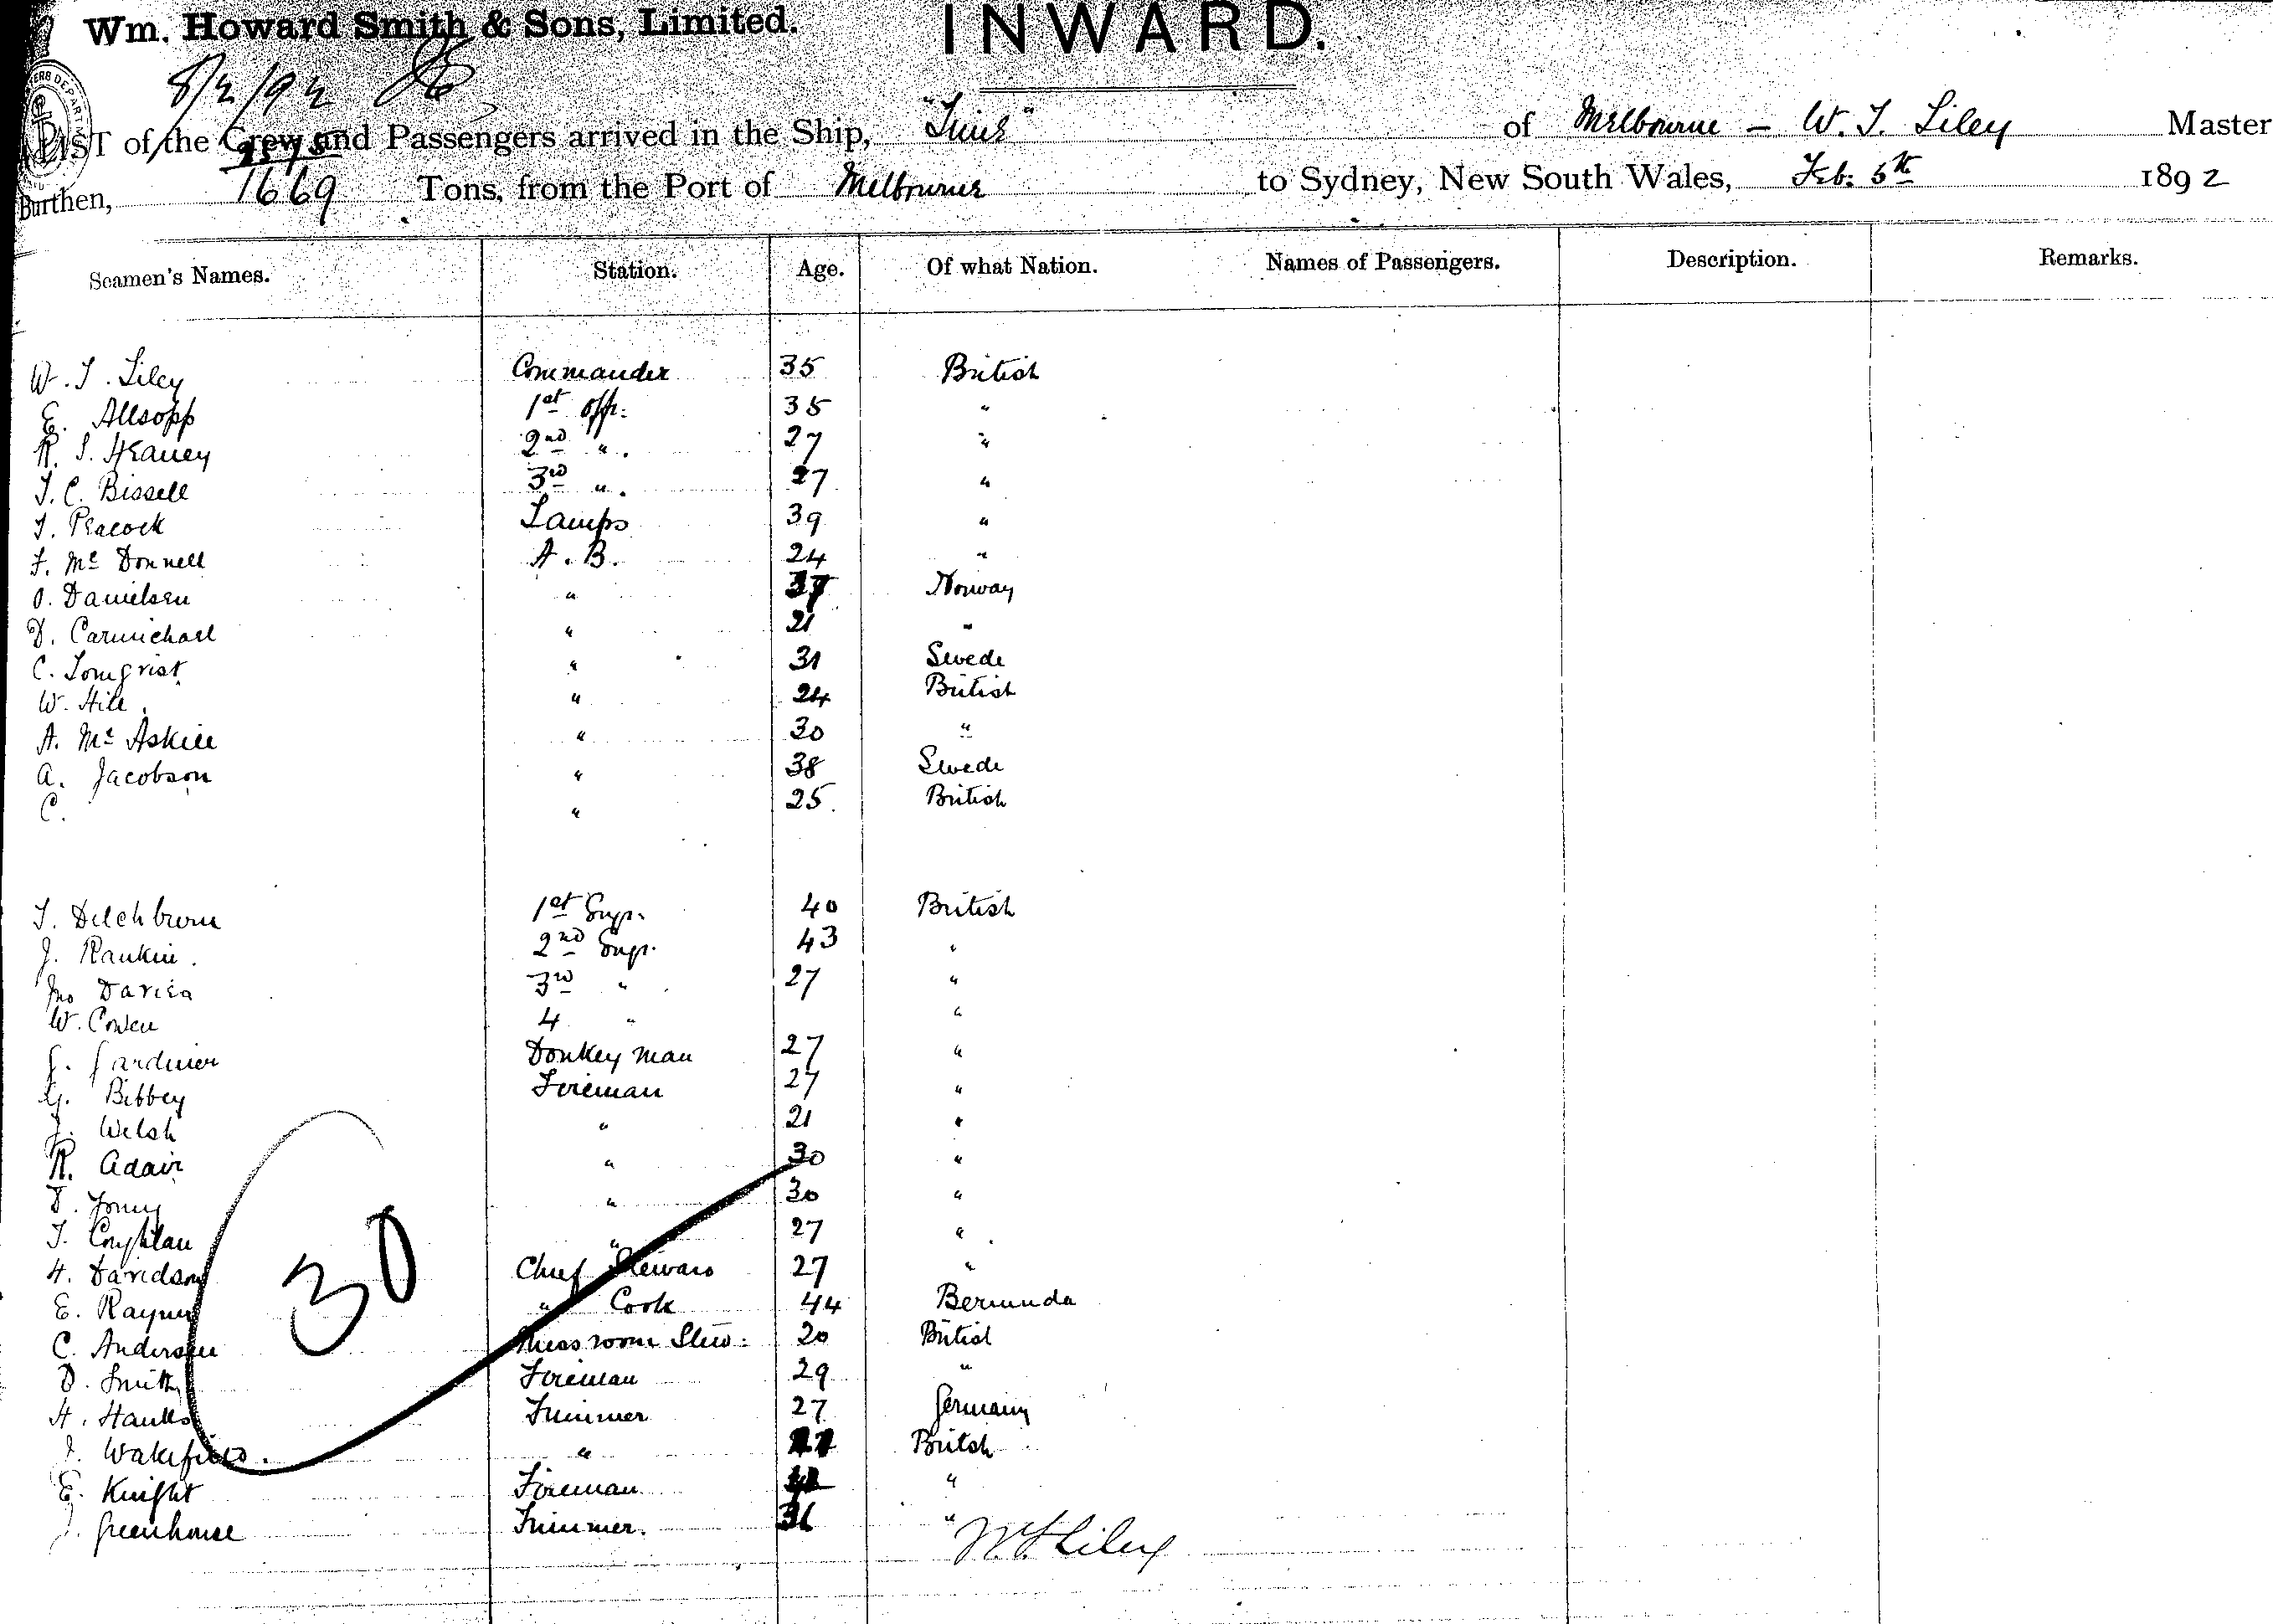 Wm. Howard Smith & Sons, Limited.
INWARD.
8/2/92
LIST of the Crew and Passengers arrived in the Ship, "Time" of Melbourne – W. T. Liley Master
Burthen, 1669 Tons, from the Port of Melbourne to Sydney, New South Wales, Feb: 5th 1892
Seamen's Names. Station. Age. Of what Nation. Names of Passengers. Description. Remarks.
W. T. Liley Commander 35 British
E. Allsopp 1st Offr. 35 "
R. S. Heaney 2nd " 27 "
T. C. Bissell 3rd " 27 "
T. Peacock Lamps 39 "
F. Mc Donnell A. B. 24 "
O. Danielsen " 37 Norway
D. Carmichael " 21 "
C. " 31 Swede
W. Hill " 24 British
A. Mc Askill " 30 "
A. Jacobson " 38 Swede
C. " 25 British
T. Ditchburn 1st Engr. 40 British
J. Rankin 2nd Engr. 43 "
Jno Davies 3rd " 27 "
W. Cowen 4 " "
J. Gardiner Donkey man 27 "
G. Bibbey Fireman 27 "
J. Welsh " 21 "
R. Adair " 30 "
D. " 30 "
T. Coghlan " 27 "
H. Davidson Chief Steward 27 "
E. Rayner " Cook 44 Bermuda
C. Andersen Mess room Stew: 20 British
D. Smith Fireman 29 "
H. Trimmer 27 Germany
J. Wakefield. " British
E. Knight Fireman "
J. Greenhouse Trimmer. 36 "
30
W. T. Liley